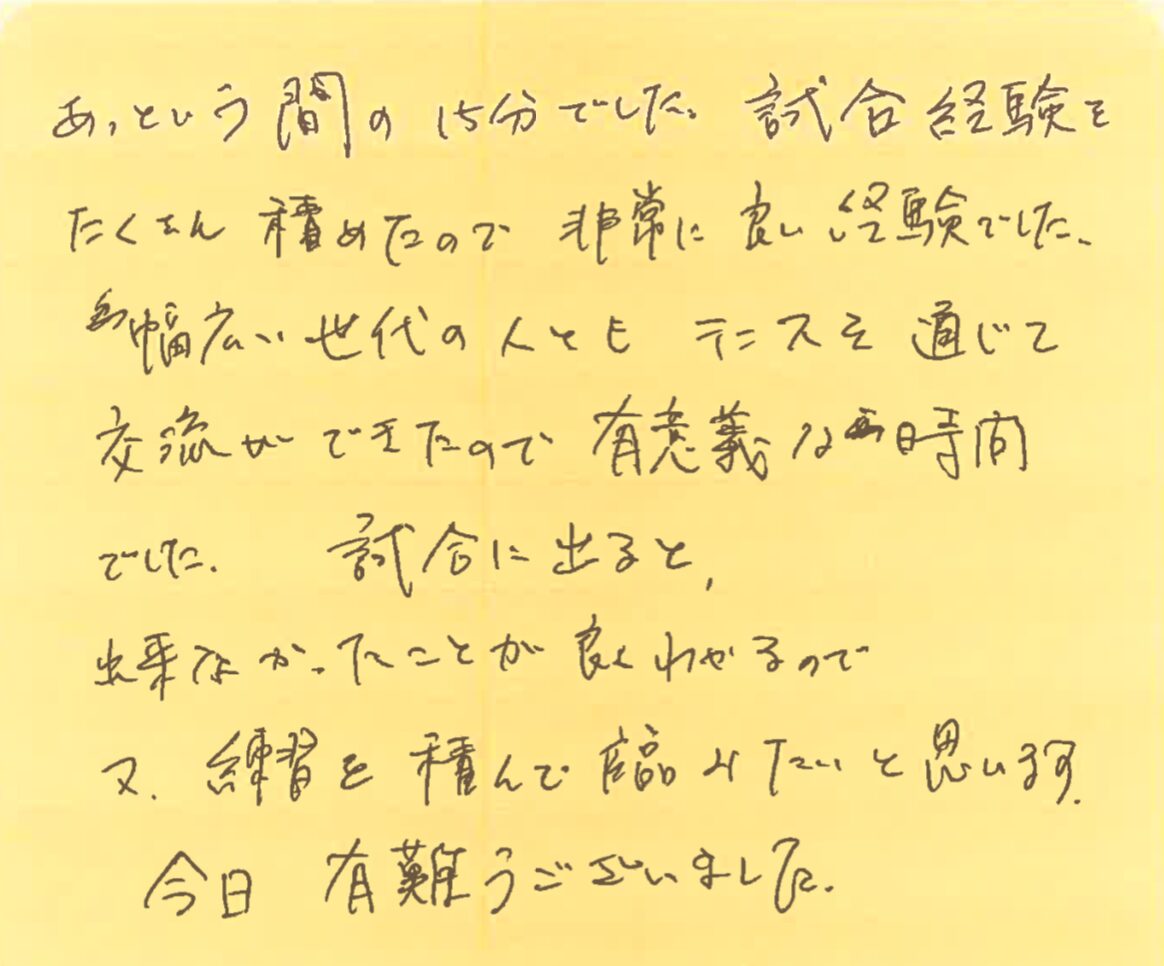 あっという間の15分でした。試合経験を
たくさん積めたので非常に良い経験でした、
幅広い世代の人とも テニスを通じて
交流ができたので有意義な時間
でした. 試合に出ると,
出来なかったことが良くわかるので
又、練習を積んで臨みたいと思います.
今日 有難うございました.